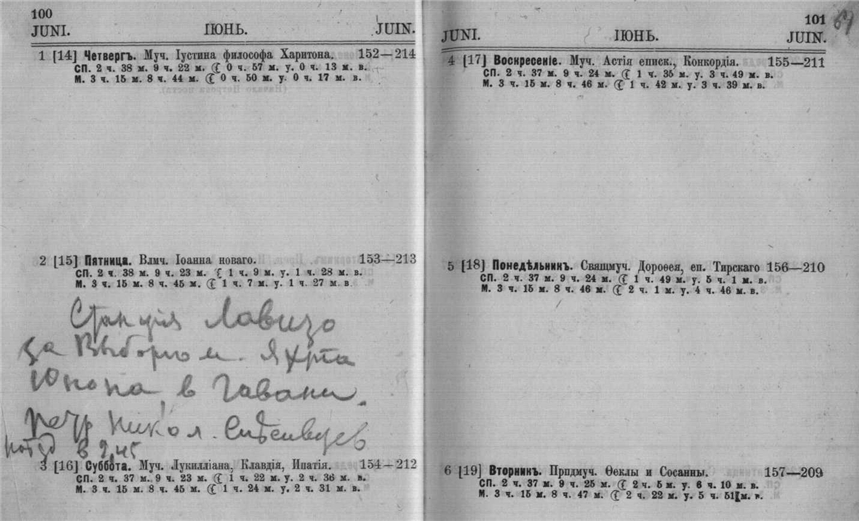 100
JUNI. ІЮНЬ. JUIN.
1 [14] Четвергъ. Муч. Іустина философа Харитона. 152—214
СП. 2 ч. 38 м. 9 ч. 22 м. ☾ 0 ч. 57 м. у. 0 ч. 13 м. в.
М. 3 ч. 15 м. 8 ч. 44 м. ☾ 0 ч. 50 м. у. 0 ч. 17 м. в.
2 [15] Пятница. Влмч. Іоанна новаго. 153—213
СП. 2 ч. 38 м. 9 ч. 23 м. ☾ 1 ч. 9 м. у. 1 ч. 28 м. в.
М. 3 ч. 15 м. 8 ч. 45 м. ☾ 1 ч. 7 м. у. 1 ч. 27 м в
Станція Лавизо
за Выборгом. Яхта
Юнона, в Гавани.
Петр Никол.
поезд в 9,45
3 [16] Суббота. Муч. Лукилліана, Клавдія, Ипатія. 154—212
СП. 2 ч. 37 м. 9 ч. 23 м. ☾ 1 ч. 22 м. у. 2 ч. 36 м. в.
М. 3 ч. 15 м. 8 ч. 45 м. ☾ 1 ч. 24 м. у. 2 ч. 31 м. в.
101
JUNI. ІЮНЬ. JUIN.
4 [17] Воскресеніе. Муч. Астія еписк., Конкордія. 155—211
СП. 2 ч. 37 м. 9 ч. 24 м. ☾ 1 ч. 35 м. у. 3 ч. 49 м. в.
М. 3 ч. 15 м. 8 ч. 46 м. ☾ 1 ч. 42 м. у. 3 ч. 39 м. в.
5 [18] Понедѣльникъ. Свящмуч. Дороѳея, еп. Тирскаго 156—210
СП. 2 ч. 37 м. 9 ч. 24 м. ☾ 1 ч. 49 м. у. 5 ч. 1 м. в.
М. 3 ч. 15 м. 8 ч. 46 м. ☾ 2 ч. 1 м. у. 4 ч. 46 м. в.
6 [19] Вторникъ. Прпдмуч. Ѳеклы и Сосанны. 157—209
СП. 2 ч. 37 м. 9 ч. 25 м. ☾ 2 ч. 5 м. у. 6 ч. 10 м. в.
М. 3 ч. 15 м. 8 ч. 47 м. ☾ 2 ч. 22 м. у. 5 ч. 51 м. в.